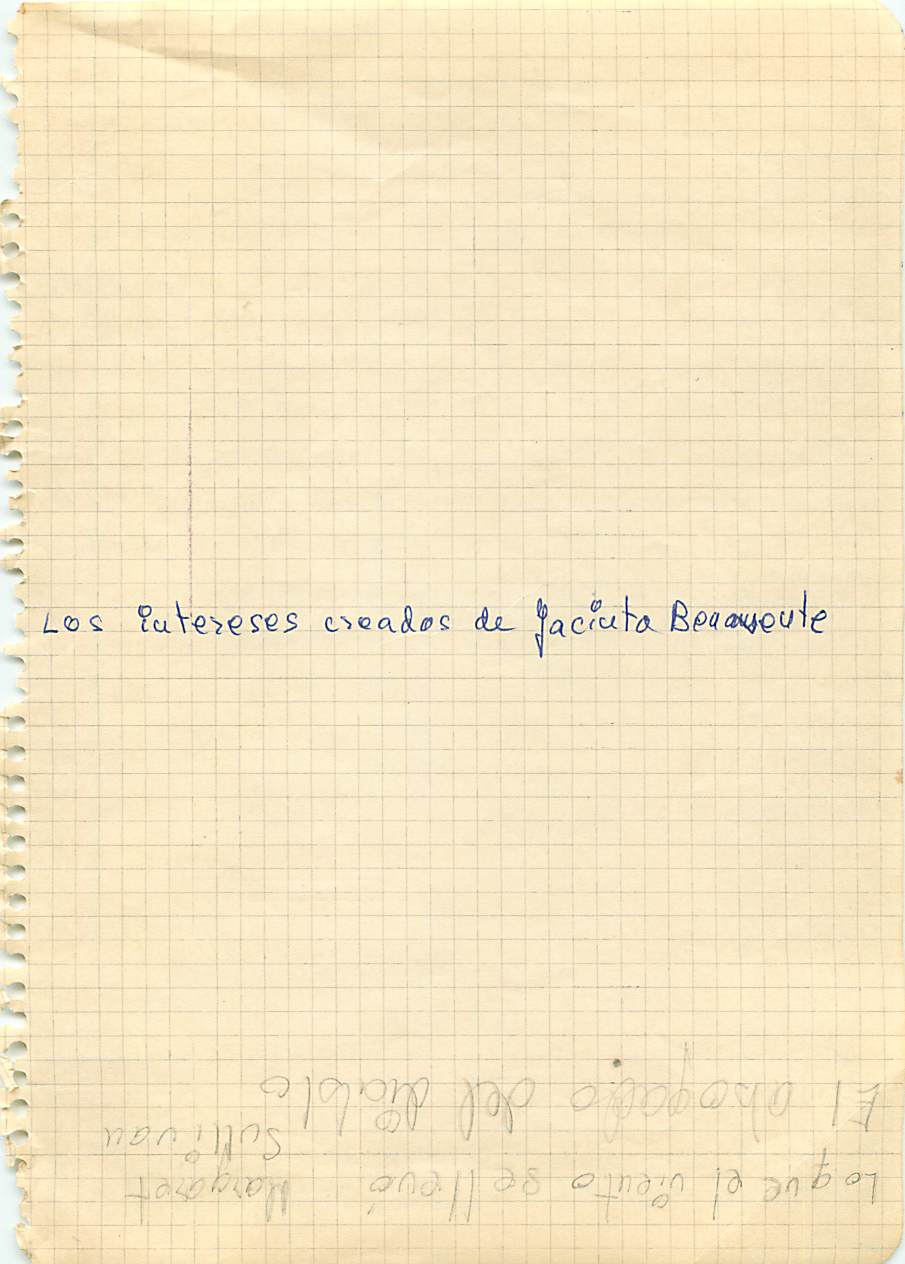 Los intereses creados de Jacinta Benavente
Lo que el viento se llevó Margaret
Sullivan
El abogado del diablo